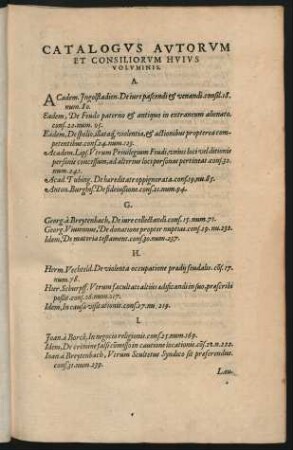 CATALOGVS AVTORVM
ET CONSILIORVM HVIVS
VOLVMINIS.
A.
ACadem. Jngolstadien. De iure pascendi & venandi. consil. 18.
num. 80.
Eadem, De Feudo paterno & antiquo in extraneum alienato.
cons. 22. num. 95.
Eadem, De spolio, illataq́; violentia, & actionibus propterea com-
petentibus. cons. 24. num. 125.
Academ. Lips. Vtrum Priuilegium Feudi, vnius loci vel ditionis
personæ concessum, ad alterius loci personas pertineat. cons. 30.
num. 241.
Acad. Tubing. De hæreditate oppignorata. cons. 19. nu. 85.
Anton. Burghes. De fideiussione cons. 21. num. 94.
G.
Georg. à Breytenbach, De iure collectandi. cons. 15. num. 71.
Georg. Viuiennus, De donatione propter nuptias. cons. 29. nu. 232.
Idem, De materia testament. cons. 30. num. 237.
H.
Herm. Vechteld. De violenta occupatione prædij feudalis. cōs. 17.
num. 78.
Hier. Schurpff. Vtrum facultas altiùs ædificandi in suo, præscribi
possit. cons. 28. num. 217.
Idem, In causa vssicationis. cons. 27. nu. 219.
I.
Joan. à Borch, In negocio religionis. cons. 25. num. 169.
Idem, De crimine falsi cōmisso in cautione locationis. cōs. 12. n. 252.
Ioan. à Breytenbach, Vtrum Scultetus Syndico sit præferendus.
cons. 31. num. 259.
Lau-